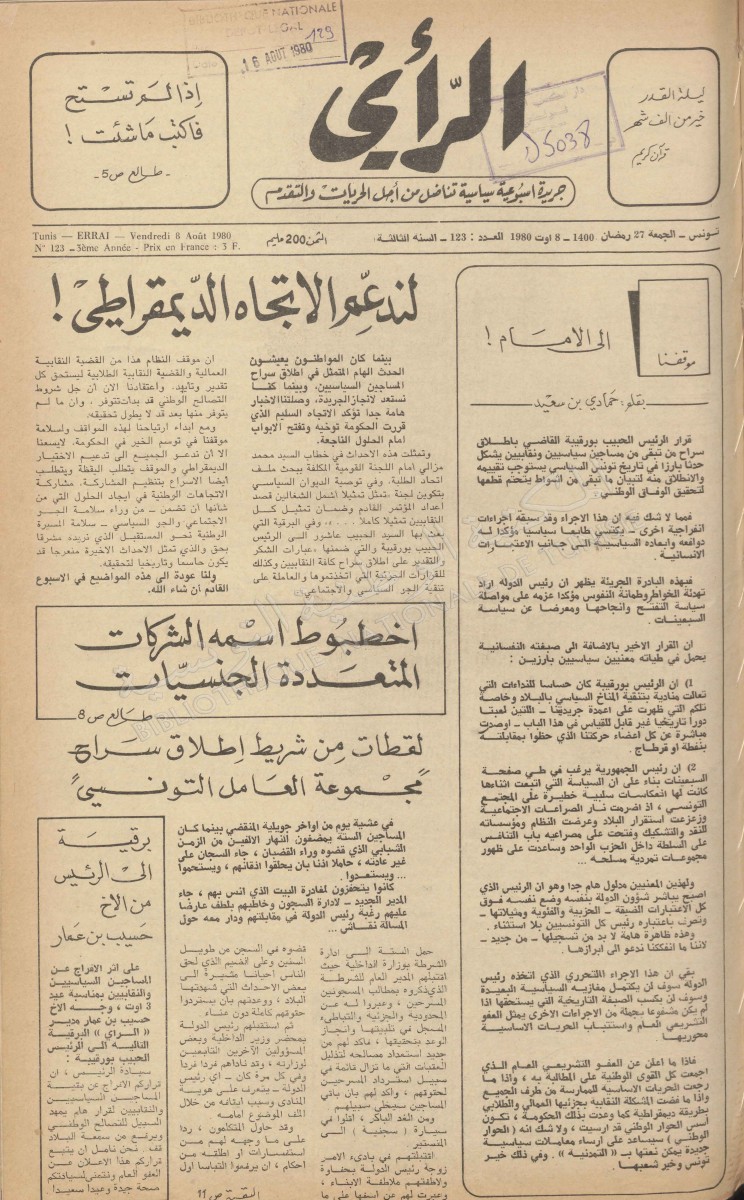 BIBLIOTHEQUE NATIONALE
DEPOT LEGAL
16 AOUT 1980
129
إذا لم تستح
فاكتب ما شئت !
- طالع ص5 -
الرّأي
D5038
ليلة القدر
خير من الف شهر
قرآن كريم
جريدة اسبوعية سياسية تناضل من أجل الحريات والتقدم
Tunis — ERRAI — Vendredi 8 Août 1980
N° 123 — 3ème Année - Prix en France : 3 F.
الثمن 200 مليم
تونس - الجمعة 27 رمضان 1400 - 8 اوت 1980 العدد : 123 - السنة الثالثة
موقفنا
الى الامام !
بقلم : حمادي بن سعيد
قرار الرئيس الحبيب بورقيبة القاضي باطلاق
سراح من تبقى من مساجين سياسيين ونقابيين يشكل
حدثا بارزا في تاريخ تونس السياسي يستوجب تقييمه
والانطلاق منه لتبيان ما تبقى من اشواط يتحتم قطعها
لتحقيق الوفاق الوطني.
فمما لا شك فيه ان هذا الاجراء وقد سبقته اجراءات
انفراجية اخرى - يكتسي طابعا سياسيا مؤكدا له
دوافعه وابعاده السياسية الى جانب الاعتبارات
الانسانية.
فبهذه البادرة الجريئة يظهر ان رئيس الدولة اراد
تهدئة الخواطر وطمأنة النفوس مؤكدا عزمه على مواصلة
سياسة التفتح وانجاحها ومعرضا عن سياسة
السبعينات.
ان القرار الاخير بالاضافة الى صبغته النفسانية
يحمل في طياته معنيين سياسيين بارزين :
1) ان الرئيس بورقيبة كان حساسا للنداءات التي
تعالت منادية بتنقية المناخ السياسي بالبلاد وخاصة
تلكم التي ظهرت على اعمدة جريدتنا - اللتين لعبتا
دورا تاريخيا غير قابل للقياس في هذا الباب - او صدرت
مباشرة عن كل اعضاء حركتنا الذي حظوا بمقابلته
بنفطة او قرطاج.
2) ان رئيس الجمهورية يرغب في طي صفحة
السبعينات بناء على ان السياسة التي اتبعت اثناءها
كانت لها انعكاسات سلبية خطيرة على المجتمع
التونسي ، اذ اضرمت نار الصراعات الاجتماعية
وزعزعت استقرار البلاد وعرضت النظام ومؤسساته
للنقد والتشكيك وفتحت على مصراعيه باب التنافس
على السلطة داخل الحزب الواحد وساعدت على ظهور
مجموعات تمردية مسلحة ...
ولهذين المعنيين مدلول هام جدا وهو ان الرئيس الذي
اصبح يباشر شؤون الدولة بنفسه وضع نفسه فوق
كل الاعتبارات الضيقة - الحزبية والفئوية ومثيلاتها -
وتصرف باعتباره رئيس كل التونسيين بلا استثناء.
وهذه ظاهرة هامة لا بد من تسجيلها - من جديد -
لاننا ما انفككنا ندعو الى ابرازها.
بقي ان هذا الاجراء التحرري الذي اتخذه رئيس
الدولة سوف لن يكتمل مغازيه السياسية البعيدة
وسوف لن يكسب الصبغة التاريخية التي يستحقها اذا
لم يكن مشفوعا بجملة من الاجراءات الاخرى يمثل العفو
التشريعي العام واستتباب الحريات الاساسية
محوريها.
فاذا ما اعلن عن العفو التشريعي العام الذي
اجمعت كل القوى الوطنية على المطالبة به ، واذا ما
رجعت الحريات الاساسية للممارسة من طرف الجميع
واذا ما فضت المشكلة النقابية بجزئيها العمالي والطلابي
بطريقة ديمقراطية كما وعدت بذلك الحكومة ، تكون
اسس الحوار الوطني قد ارسيت ، ولا شك انه (الحوار
الوطني) سيساعد على ارساء معاملات سياسية
جديدة يمكن نعتها بـ « التمدنية ». وفي ذلك خير
تونس وخير شعبها.
لندعّم الاتجاه الدّيمقراطي !
بينما كان المواطنون يعيشون
الحدث الهام المتمثل في اطلاق سراح
المساجين السياسيين، وبينما كنا
نستعد لانجاز الجريدة، وصلتنا الاخبار
هامة جدا تؤكد الاتجاه السليم الذي
قررت الحكومة توخيه وتفتح الابواب
امام الحلول الناجعة.
وتمثلت هذه الاحداث في خطاب السيد محمد
مزالي امام اللجنة القومية المكلفة ببحث ملف
اتحاد الطلبة. وفي توصية الديوان السياسي
بتكوين لجنة ،تمثل تمثيلا اشمل الشغالين قصد
اعداد المؤتمر القادم وضمان تمثيل كل
النقابيين تمثيلا كاملا ....، وفي البرقية التي
بعث بها السيد الحبيب عاشور الى الرئيس
الحبيب بورقيبة والتي ضمنها ،عبارات الشكر
والتقدير على اطلاق سراح كافة النقابيين وكذلك
للقرارات الجزئية التي اتخذتموها والعاملة على
تنقية الجو السياسي والاجتماعي،
ان موقف النظام هذا من القضية النقابية
العمالية والقضية النقابية الطلابية ليستحق كل
تقدير وتأييد. واعتقادنا الان ان جل شروط
التصالح الوطني قد بدأت تتوفر . وان ما لم
يتوفر منها بعد قد لا يطول تحقيقه.
ومع ابداء ارتياحنا لهذه المواقف ولسلامة
موقفنا في توسم الخير في الحكومة. لايسعنا
الا ان ندعو الجميع الى تدعيم الاختيار
الديمقراطي والموقف يتطلب اليقظة ويتطلب
أيضا الاسراع بتنظيم المشاركة. مشاركة
الاتجاهات الوطنية في ايجاد الحلول التي من
شأنها ان تضمن - من وراء سلامة الجو
الاجتماعي والجو السياسي - سلامة المسيرة
الوطنية نحو المستقبل الذي نريده مشرقا
بحق والذي تمثل الاحداث الاخيرة منعرجا قد
يكون حاسما وتاريخيا لتحقيقه.
ولنا عودة الى هذه المواضيع في الاسبوع
القادم أن شاء الله.
اخطبوط اسمه الشركات
المتعددة الجنسيّات
طالع ص 8
لقطات من شريط إطلاق سراح
"مجموعة العامل التونسي"
في عشية يوم من اواخر جويلية المنقضي بينما كان
المساجين الستة يمضغون النهار الالفين من الزمن
الشبابي الذي قضوه وراء القضبان ، جاء السجان على
غير عادته ، حاملا اذنا بان يحلقوا اذقانهم ، ويستحموا
... ويستعدوا.
كانوا يتحفزون لمغادرة البيت الذي انس بهم ، جاء
المدير الجديد - لادارة السجون وخاطبهم بلطف عارضا
عليهم رغبة رئيس الدولة في مقابلتهم ودار معه حول
المسألة نقاشي ...
حمل الستة الى ادارة
الشرطة بوزارة الداخلية حيث
اقتبلهم المدير العام للشرطة
الذي ذكروه بمطالب المسجونين
المسرحين ، وعبروا له عن
المحدودية والجزئية والتباطىء
المسجل في تلبيتها وانجاز
الوعد بتحقيقها ، فأكد لهم من
جديد استعداد مصالحه لتذليل
العقبات التي ما تزال قائمة في
سبيل استرداد المسرحين
لحقوقهم ، واكد لهم بان باقي
المساجين سيخلى سبيلهم.
ومن الغد الباكر ، اتلوا في
سيارة (سجنية) الى
المنستير
اقتبلتهم في بادىء الامر
زوجة رئيس الدولة بحرارة
ولاطفتهم ملاطفة الابناء ،
وعبرت لهم عن اسفها على ما
قضوه في السجن من طويل
السنين وعلى الضيم الذي لحق
الناس احيانا مشيرة الى
بعض الاحداث التي شهدتها
البلاد ، ووعدتهم بان يستردوا
حقوقهم كاملة دون عناء.
ثم استقبلهم رئيس الدولة
بمحضر وزير الداخلية وبعض
المسؤولين الاخرين التابعين
لوزارته ، وقد ناداهم فردا فردا
وفي كل مرة كان - اي رئيس
الدولة - يتعرف على هوية
المنادى وسبب ايقافه من خلال
الملف الموضوع امامه
وقد حاول المتكلمون ، ردا
على ما وجهه لهم من
استفسارات او اطلقه من
احكام ، ان يرفعوا التباسا اول
البقية ص 11
برقية
الى الرئيس
من الاخ
حسيب بن عمار
على أثر الافراج عن
المساجين السياسيين
والنقابيين بمناسبة عيد
3 أوت ، وجه الاخ
حسيب بن عمار مدير
« الراي » البرقية
التالية الى الرئيس
الحبيب بورقيبة :
سيادة الرئيس ، ان
قراركم الافراج عن بقية
المساجين السياسيين
والنقابيين لقرار هام يمهد
السبيل للتصالح الوطني
ويرفع من سمعة البلاد
فى . نحن نأمل ان يتبع
قراركم هذا الاعلان عن
العفو العام ونتمنى لسيادتكم
صحة جيدة وعيدا سعيدا.